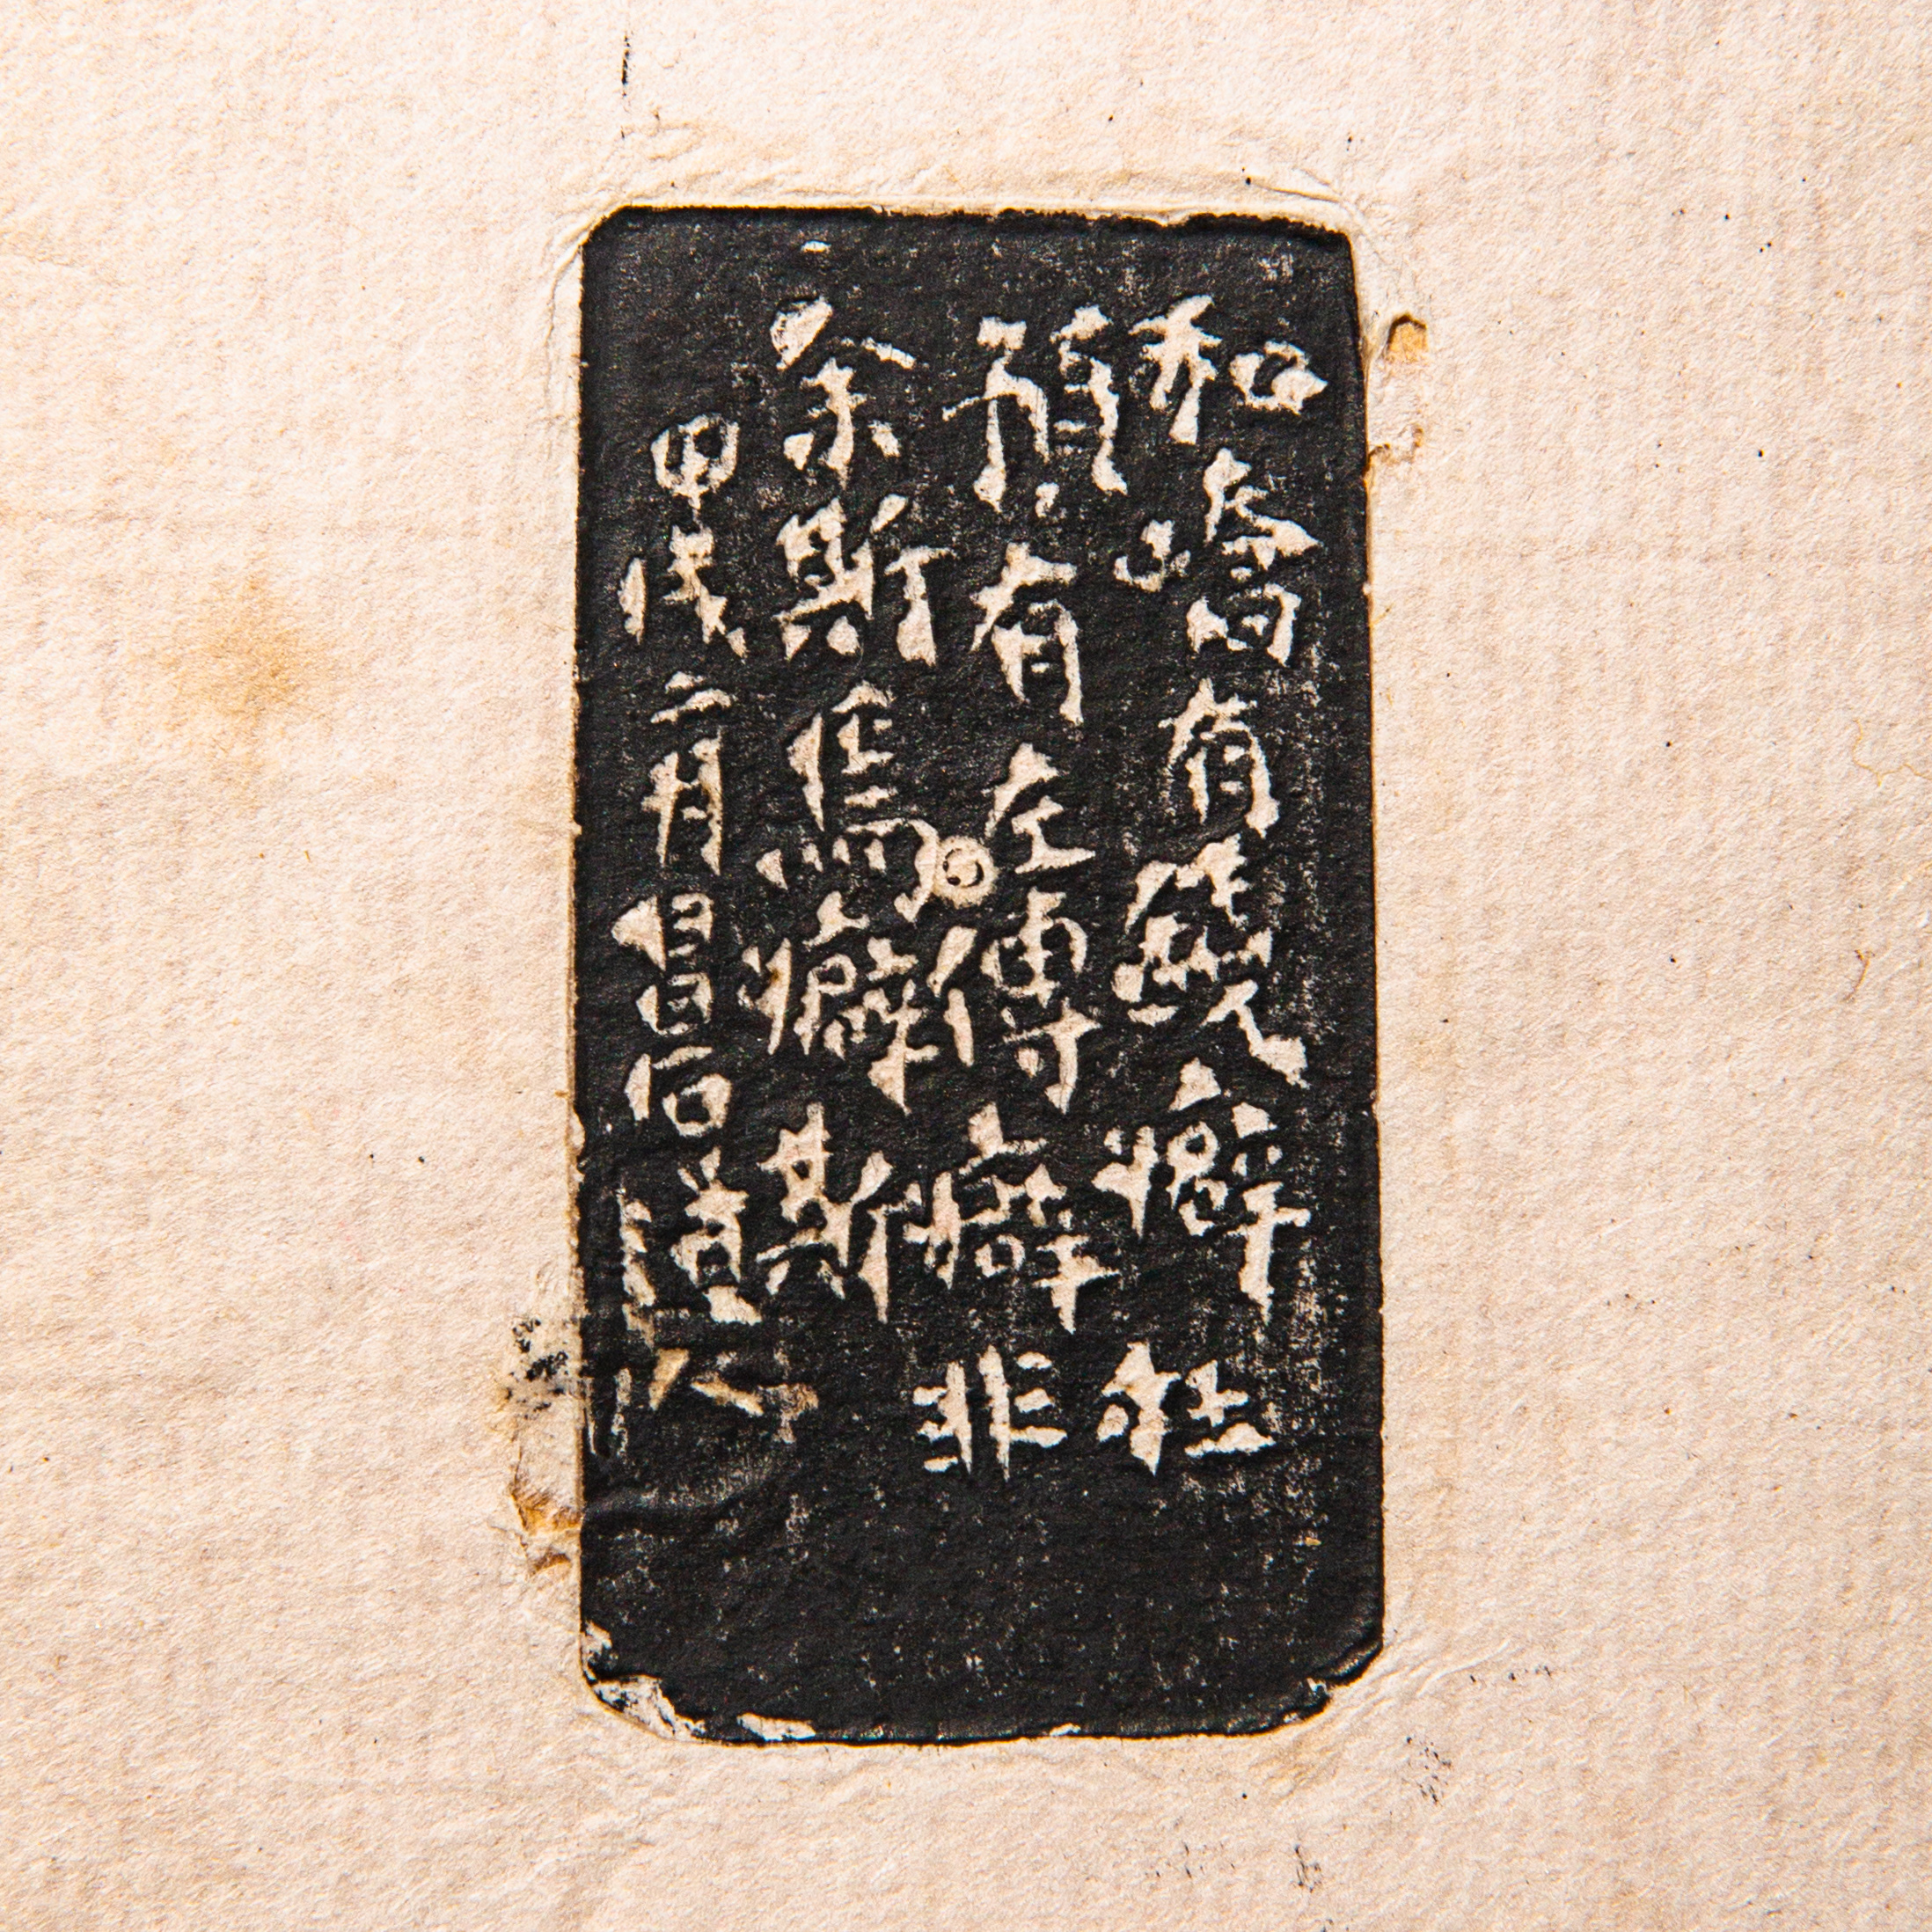 和嶠有錢癖杜
預有左傳癖非
余斯癖斯
甲戌二月昌石道人